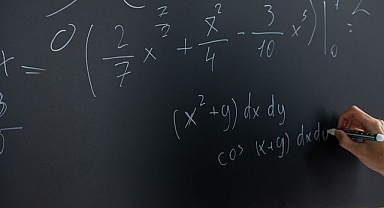 + = 0 ( 2/7 x^7/2 + x^2/4 - 3/10 x^5 ) |_0^1 =
(x^2+y) dx dy
cos (x+y) dx dy